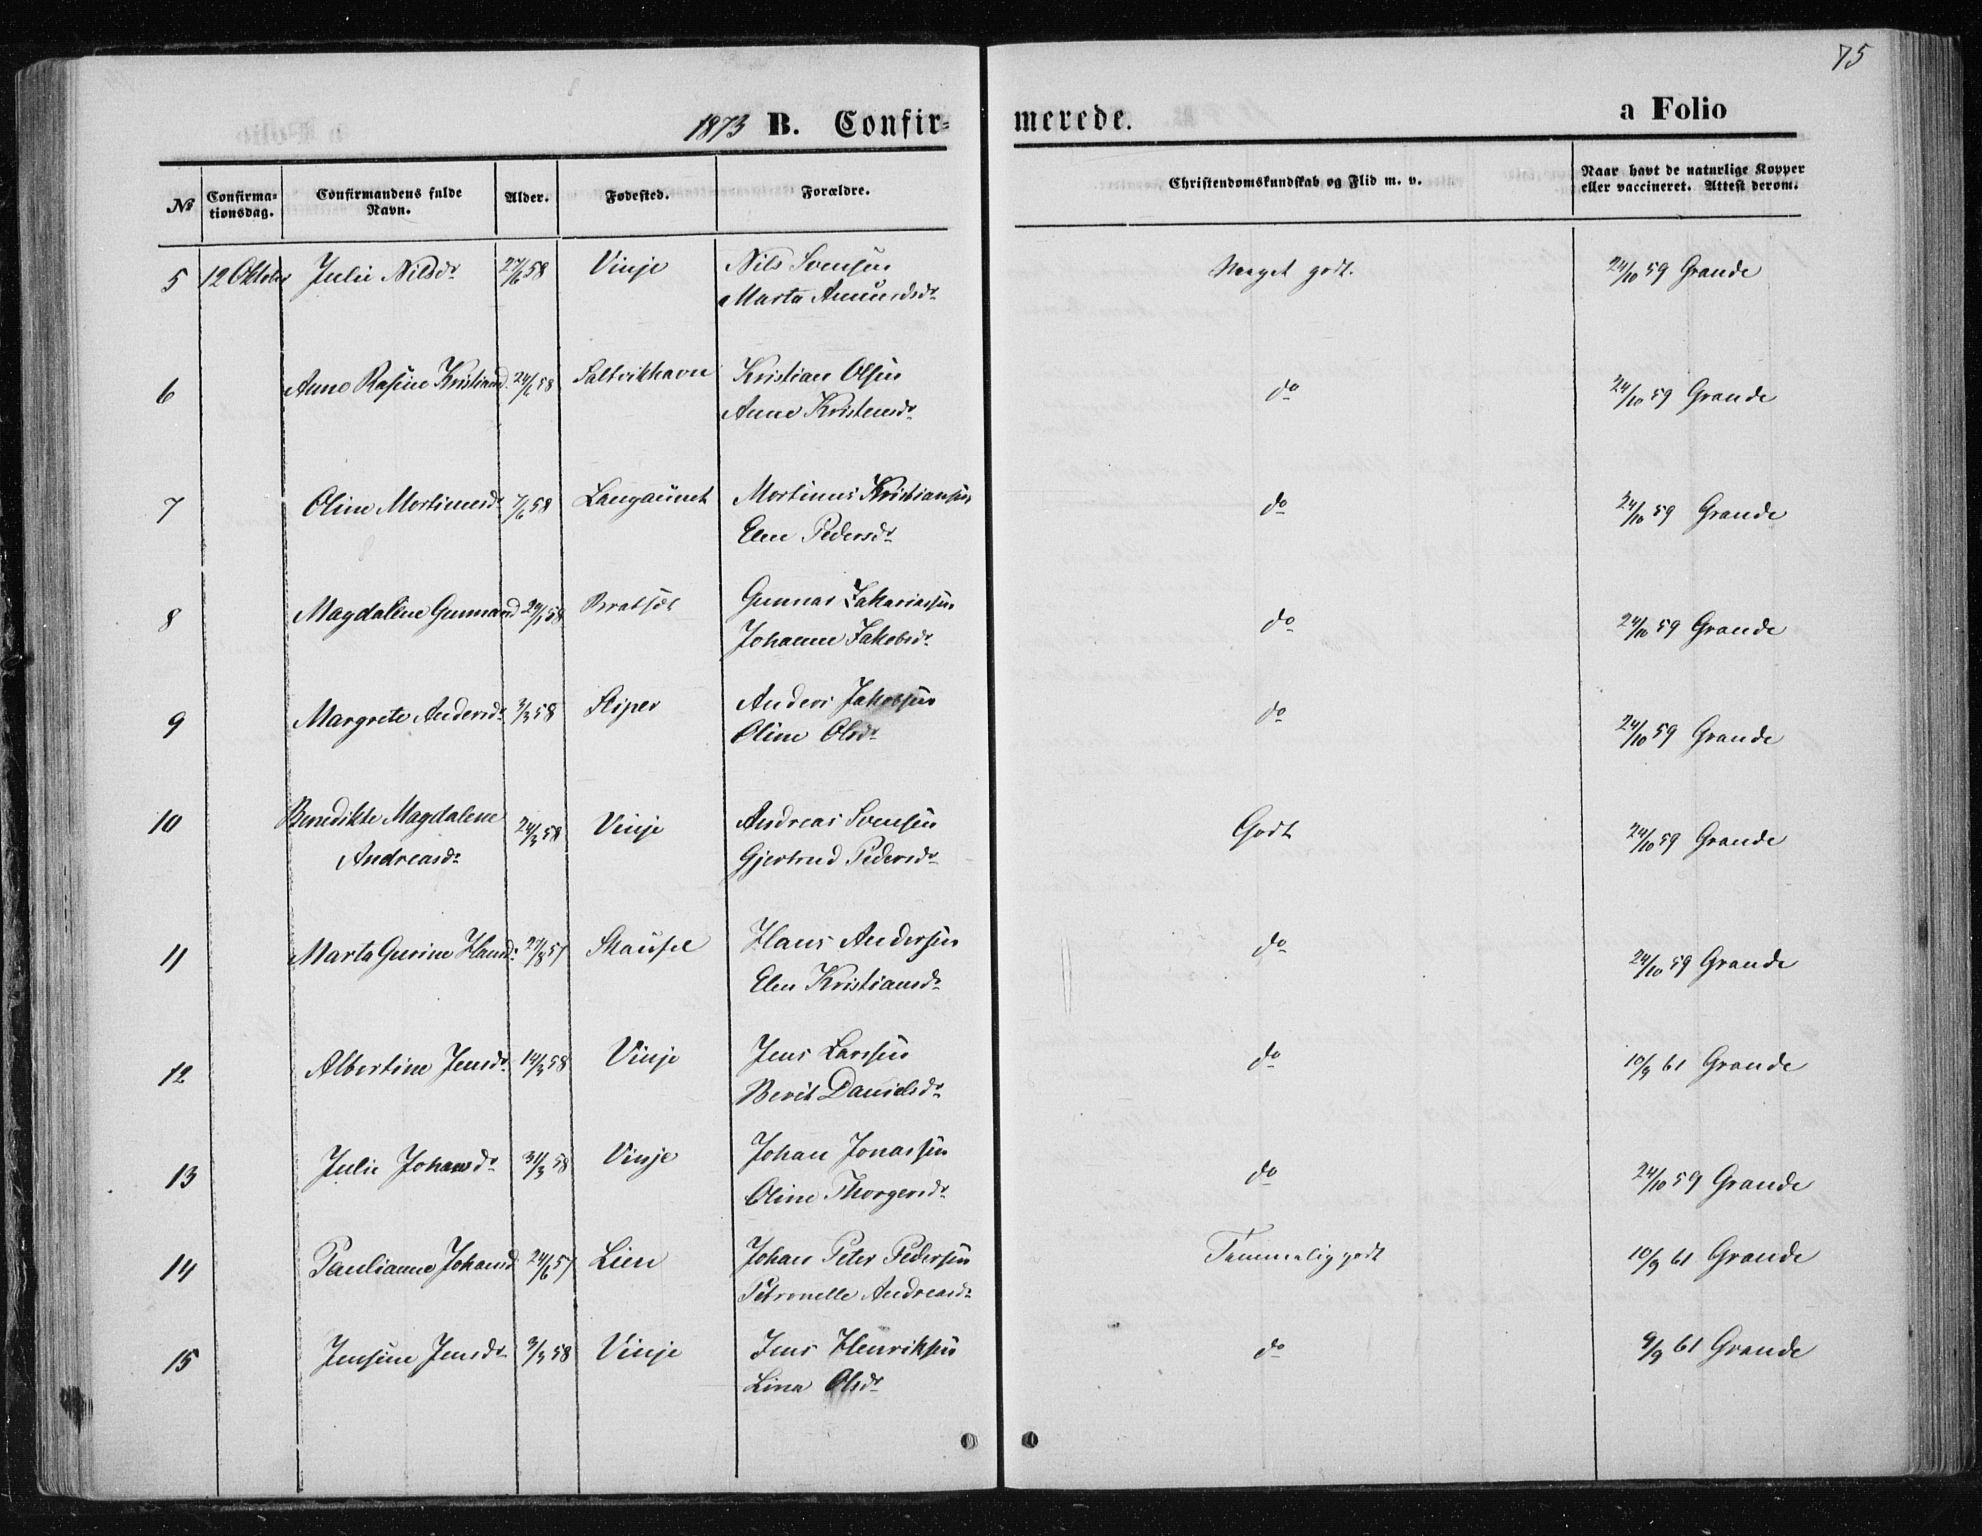 75
1873 B. Confir- merede. a Folio
No Confirma-tionsdag. Confirmandens fulde Navn. Alder. Fødested. Forældre. Christendomskundskab og Flid m. v. Naar havt de naturlige Kopper eller vaccineret. Attest derom.
5 12 Oktober Julie Nilsdr 58 Vinje Nils Svensen Meget godt. 24/10 59 Grande
Marta Amundsdr
6 Anne Rasine Kristiand. 24/6 58 Saltvikhavn Kristian Olsen do 24/10 59 Grande
Anne Kristensdr
7 Oline Mortinusdr 7/6 58 Langaunet Mortinus Kristiansen do 24/10 59 Grande
Elen Pedersdr
8 Magdalene Gunnard 24/1 58 Bratset Gunnar Zakariassen do 24/10 59 Grande
Johanne Jakobsdr
9 Margrete Andersdr 3/3 58 Stiper Anders Jakobsen do 24/10 59 Grande
Oline Olsdr
10 Benedikte Magdalene 24/3 58 Vinje Andreas Svensen Godt 24/10 59 Grande
Andreasdr Gjertrud Pedersdr
11 Marta Gurine Hansdr 27/8 57 Skausel Hans Andersen do 24/10 59 Grande
Elen Kristiansdr
12 Albertine Jensdr 14/3 58 Vinje Jens Larsen do 10/9 61 Grande
Berit Danielsdr
13 Julie Johansdr 31/3 58 Vinje Johan Jonassen do 24/10 59 Grande
Oline Thorgersdr
14 Paulianne Johansd 24/6 57 Lien Johan Peter Pedersen Temmelig godt 10/9 61 Grande
Petronelle Andreasdr
15 Jensine Jensdr 3/3 58 Vinje Jens Henriksen do 9/9 61 Grande
Lina Olsdr